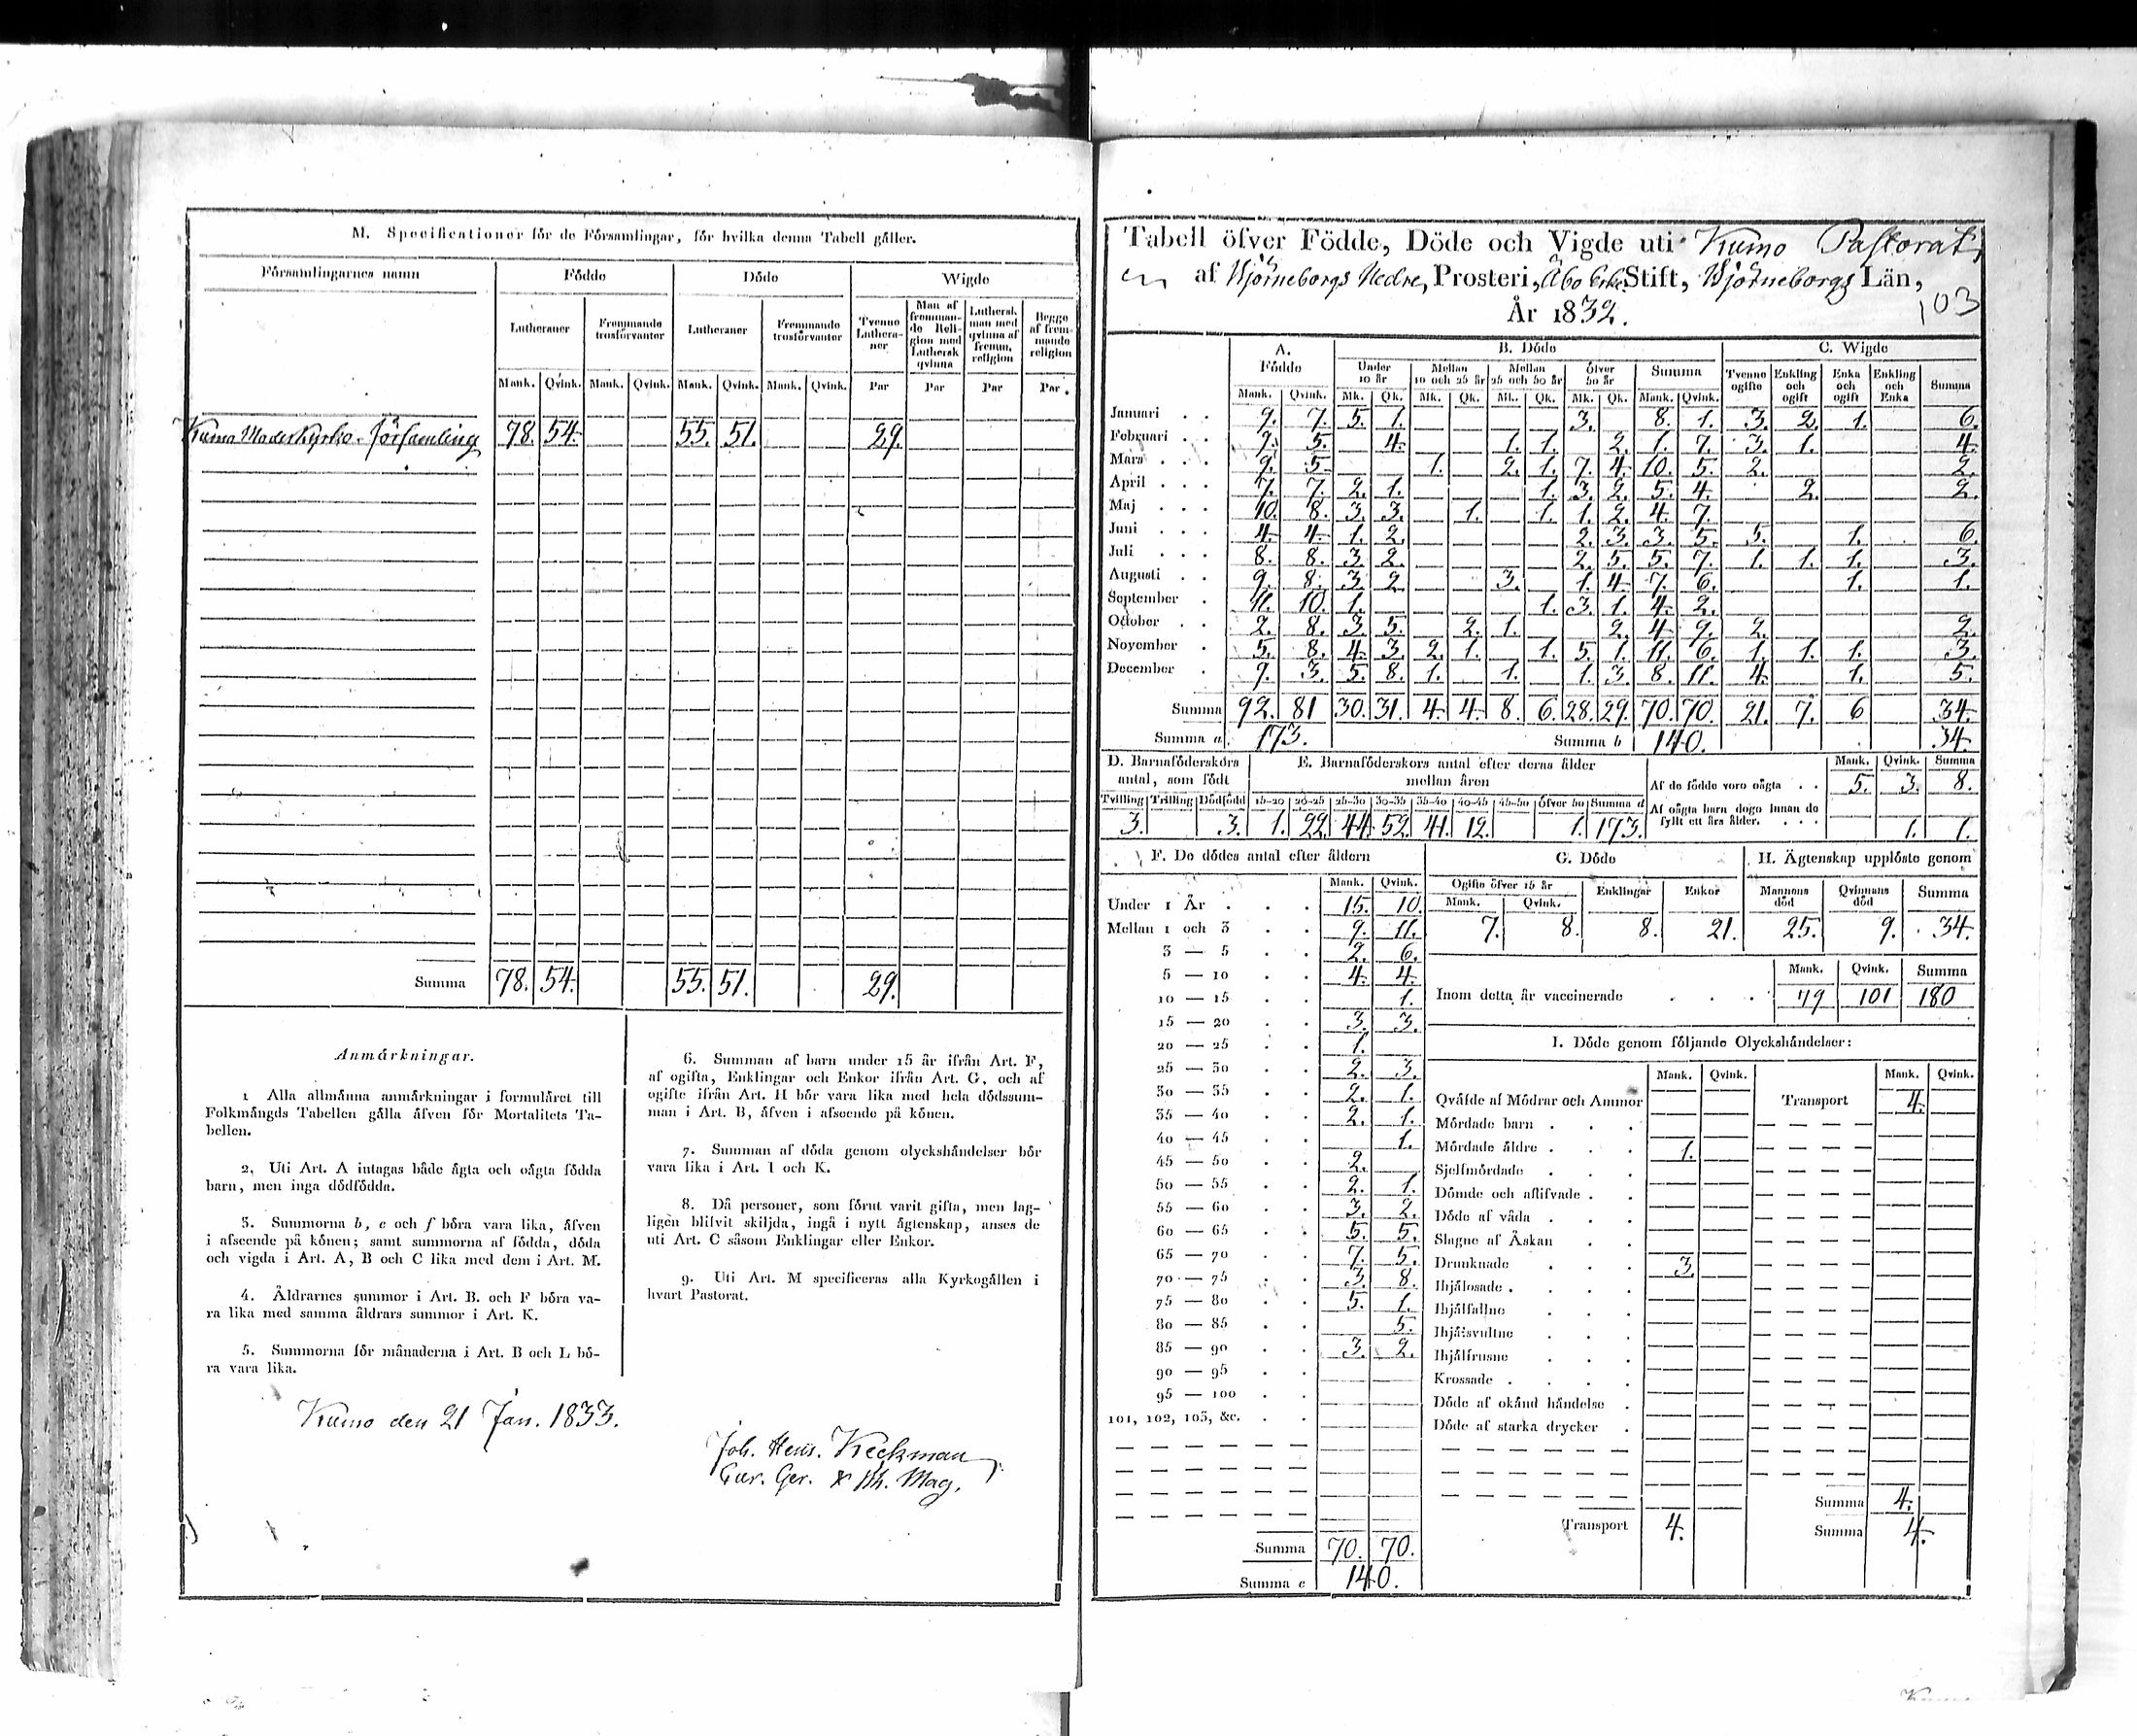 M. Specificationer för de Församlingar, för hvilka denna Tabell gäller.
Församlingarnes namn Födde Döde Wigde
Lutheraner Fremmande trosförvanter Lutheraner Fremmande trosförvanter Tvenne Lutheraner Man af fremmande Religion med Luthersk qvinna Luthersk man med qvinna af fremm. religion Begge af fremmande religion
Mank. Qvink. Mank. Qvink. Mank. Qvink. Mank. Qvink. Par Par Par Par
Kumo Moderkyrko-församling 78. 54. 55. 51. 29.
Summa 78. 54. 55. 51. 29.
Anmärkningar.
1 Alla allmänna anmärkningar i formuläret till
Folkmängds Tabellen gälla äfven för Mortalitets Ta-
bellen.
2. Uti Art. A intagas både ägta och oägta födda
barn, men inga dödfödda.
3. Summorna b, e och f böra vara lika, äfven
i afseende på könen; samt summorna af födda, döda
och vigda i Art. A, B och C lika med dem i Art. M.
4. Åldrarnes summor i Art. B. och F böra va-
ra lika med samma åldrars summor i Art. K.
5. Summorna för månaderna i Art. B och L bö-
ra vara lika.
6. Summan af barn under 15 år ifrån Art. F,
af ogifta, Enklingar och Enkor ifrån Art. G, och af
ogifte ifrån Art. H bör vara lika med hela dödssum-
man i Art. B, äfven i afseende på könen.
7. Summan af döda genom olyckshändelser bör
vara lika i Art. I och K.
8. Då personer, som förut varit gifta, men lag-
ligen blifvit skiljda, ingå i nytt ägtenskap, anses de
uti Art. C såsom Enklingar eller Enkor.
9. Uti Art. M specificeras alla Kyrkogällen i
hvart Pastorat.
Kumo den 21 Jan. 1833.
Joh. Henr. Keckman
Cur. Ger. & Ph. Mag.
Tabell öfver Födde, Döde och Vigde uti Kumo Pastorat,
af Björneborgs Nedre, Prosteri, Åbo Erke Stift, Björneborgs Län,
År 1832.
103
A. Födde B. Döde C. Wigde
Under 10 år Mellan 10 och 25 år Mellan 25 och 50 år Öfver 50 år Summa Tvenne ogifte Enkling och ogift Enka och ogift Enkling och Enka Summa
Mank. Qvink. Mk. Qk. Mk. Qk. Mk. Qk. Mk. Qk. Mank. Qvink.
Januari 9. 7. 5. 1. 3. 8. 1. 3. 2. 1. 6.
Februari 9. 5. 4. 1. 1. 2. 1. 7. 3. 1. 4.
Mars 9. 5. 1. 2. 1. 7. 4. 10. 5. 2. 2.
April 7. 7. 2. 1. 1. 3. 2. 5. 4. 2. 2.
Maj 10. 8. 3. 3. 1. 1. 1. 2. 4. 7.
Juni 4. 4. 1. 2. 2. 3. 3. 5. 5. 1. 6.
Juli 8. 8. 3. 2. 2. 5. 5. 7. 1. 1. 1. 3.
Augusti 9. 8. 3. 2 3. 1. 4. 7. 6. 1. 1.
September 11. 10. 1. 1. 3. 1. 4. 2.
October 2. 8. 3. 5. 2. 1. 2. 4. 9. 2. 2.
November 5. 8. 4. 3. 2. 1. 1. 5. 1. 11. 6. 1. 1. 1. 3.
December 9. 3. 5. 8. 1. 1. 1. 3. 8. 11. 4. 1. 5.
Summa 92. 81 30. 31. 4. 4. 8. 6. 28. 29. 70. 70. 21. 7. 6 34.
Summa a. 173. Summa b 140. 34.
D. Barnaföderskors antal, som födt
Tvilling Trilling Dödfödd
3. 3.
E. Barnaföderskors antal efter deras ålder mellan åren
15-20 20-25 25-30 30-35 35-40 40-45 45-50 Öfver 50 Summa d
1. 22 44 52. 41. 12. 1. 173.
Mank. Qvink. Summa
Af de födde voro oägta 5. 3. 8.
Af oägta barn dogo innan de fyllt ett års ålder. 1. 1.
F. De dödes antal efter åldern
Mank. Qvink.
Under 1 År 15. 10.
Mellan 1 och 3 9. 11.
3 — 5 2. 6.
5 — 10 4. 4.
10 — 15 1.
15 — 20 3. 3.
20 — 25 1.
25 — 30 2. 3.
30 — 35 2. 1.
35 — 40 2. 1.
40 — 45 1.
45 — 50 2.
50 — 55 2. 1.
55 — 60 3. 2.
60 — 65 5. 5.
65 — 70 7. 5.
70 — 75 3. 8.
75 — 80 5. 1.
80 — 85 5.
85 — 90 3. 2.
90 — 95
95 — 100
101, 102, 103, &c.
Summa 70. 70.
Summa e 140.
G. Döde
Ogifte öfver 15 år Enklingar Enkor
Mank. Qvink.
7. 8. 8. 21.
H. Ägtenskap upplöste genom
Mannens död Qvinnans död Summa
25. 9. 34.
Mank. Qvink. Summa
Inom detta år vaccinerade 79 101 180
I. Döde genom följande Olyckshändelser:
Mank. Qvink. Mank. Qvink.
Qväfde af Mödrar och Ammor Transport 4.
Mördade barn
Mördade äldre 1.
Sjelfmördade
Dömde och aflifvade
Döde af våda
Slagne af Åskan
Drunknade 3.
Ihjälosade
Ihjälfallne
Ihjälsvultne
Ihjälfrusne
Krossade
Döde af okänd händelse
Döde af starka drycker
Summa 4.
Transport 4. Summa 4.